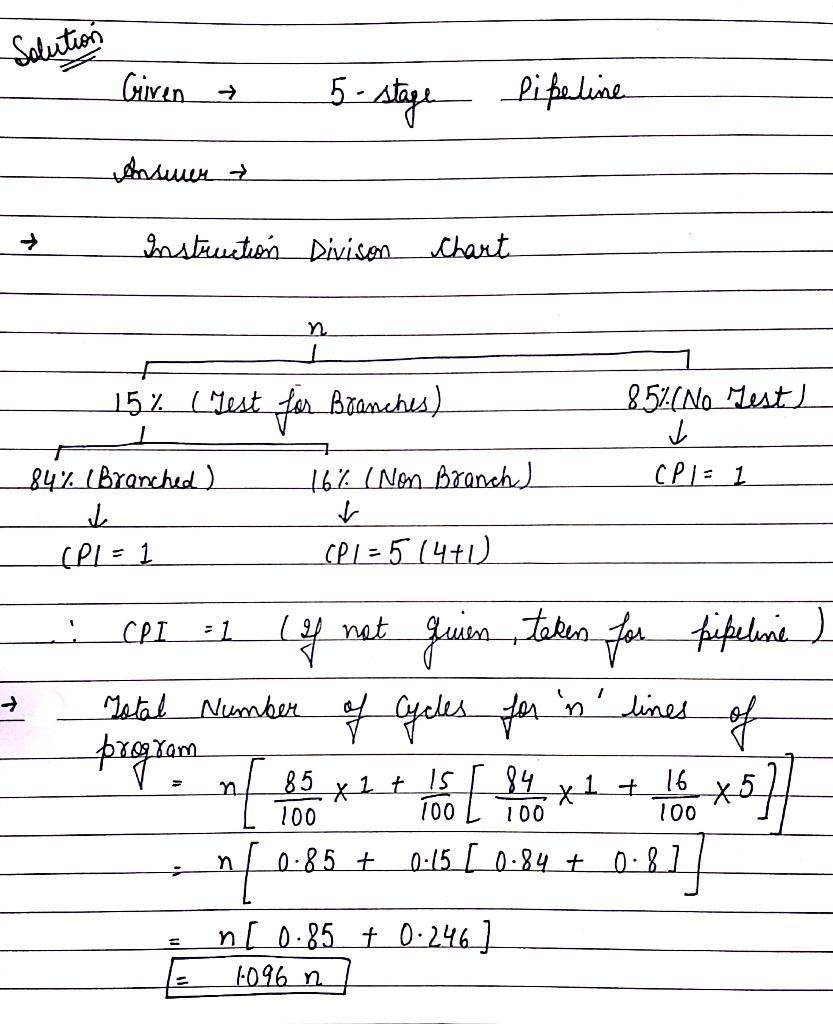 Solution
Given → 5-stage Pipeline
Answer →
→ Instruction Divison Chart
n
15% (Test for Branches) 85% (No Test)
84% (Branched) 16% (Non Branch) CPI = 1
CPI = 1 CPI = 5 (4+1)
∴ CPI = 1 (If not given, taken for pipeline)
→ Total Number of Cycles for 'n' lines of
program
= n[ 85/100 × 1 + 15/100 [ 84/100 × 1 + 16/100 × 5 ]]
= n[ 0.85 + 0.15 [ 0.84 + 0.8 ] ]
= n[ 0.85 + 0.246 ]
= 1.096 n